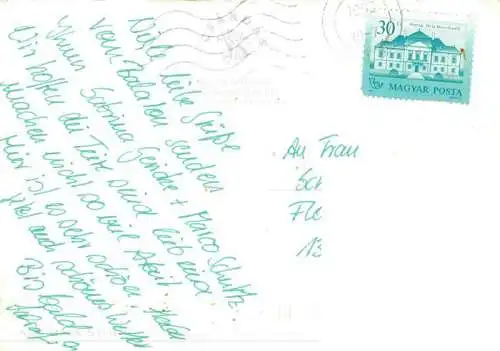 Viele liebe Grüße
vom Balaton senden
Ihnen Sabrina Geister + Marco Schultz
Wir hoffen die Tiere sind lieb und
machen nicht so viel Arbeit.
Hier ist es sehr schön. Haben
viel auch schönes Wetter
Bis bald
30
MAGYAR POSTA
An Frau
Sch
Fle
13